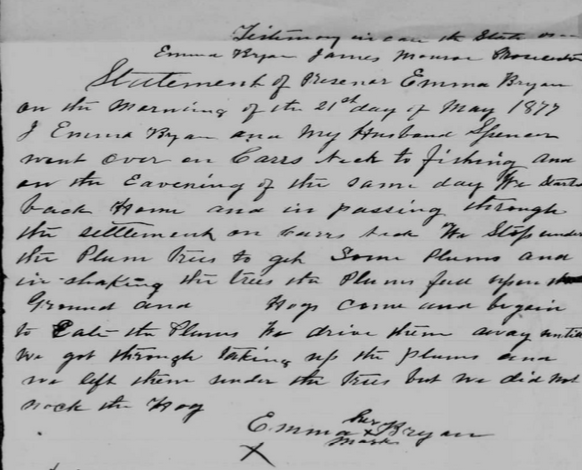 Testimony in case the State vs
Emma Bryan James Monroe
Statement of Presenar Emma Bryan
on the Morning of the 21st day of May 1877
I Emma Bryan and My Husband Spencer
went over on Carrs Neck to fishing and
on the Eavening of the same day We
back Home and in passing through
the settlement on Carrs neck We Stop under
the Plum trees to get Some Plums and
in shaking the trees the Plums fell upon the
Ground and Hogs come and begain
to Eate the Plums We drive them away until
we got through taking up the plums and
we left them under the trees but we did not
nock the Hog
her
Emma x Bryan
mark
X